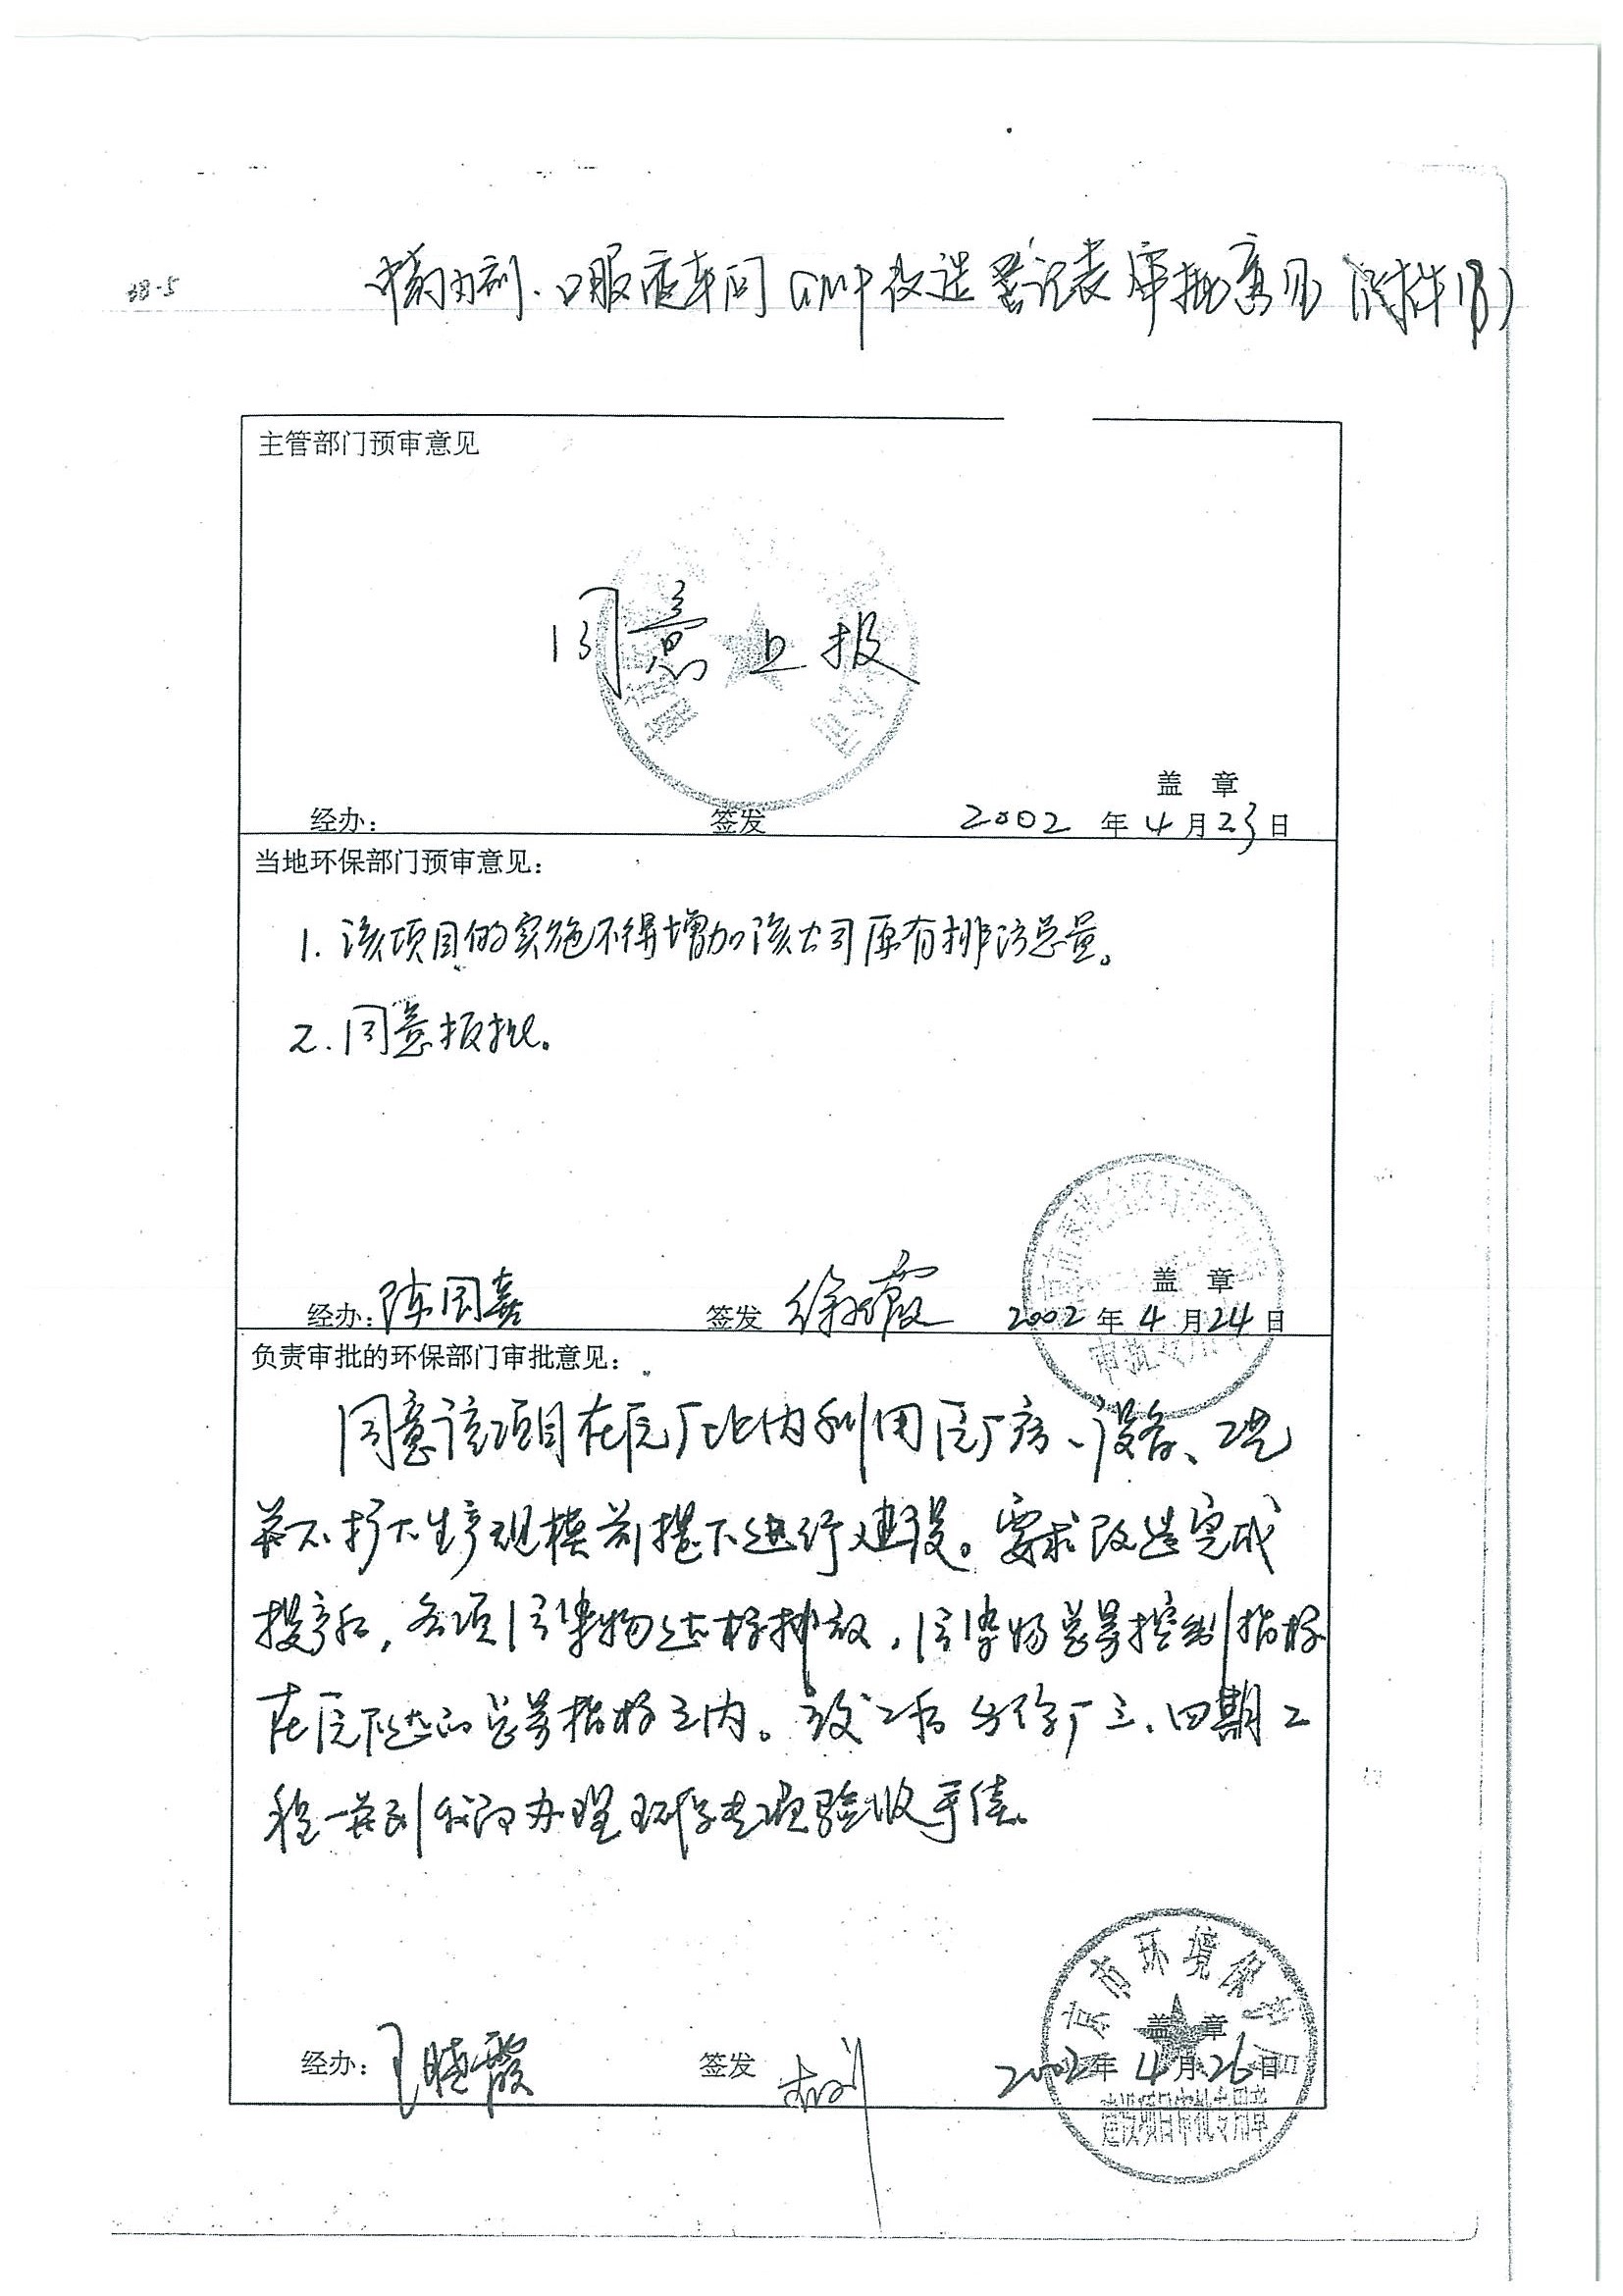 38-5
口服液车间GMP改造登记表审批意见
主管部门预审意见
同意上报
盖 章
经办: 签发 2002 年 4 月 23 日
当地环保部门预审意见:
1. 该项目的实施不得增加该公司原有排污总量。
2. 同意报批。
盖 章
经办: 陈国嘉 签发 徐霞 2002 年 4 月 24 日
审批专用章
负责审批的环保部门审批意见:
同意该项目在原厂址内利用原厂房、设备、工艺
并不扩大生产规模前提下进行建设。要求改造完成
投产后,各项污染物达标排放,污染物总量控制指标
在原下达的总量指标之内。竣工后与你厂三、四期工
程一并到我局办理环保专项验收手续。
京市环境保
盖 章
经办: 签发 2002 年 4 月 26 日
建设项目审批专用章